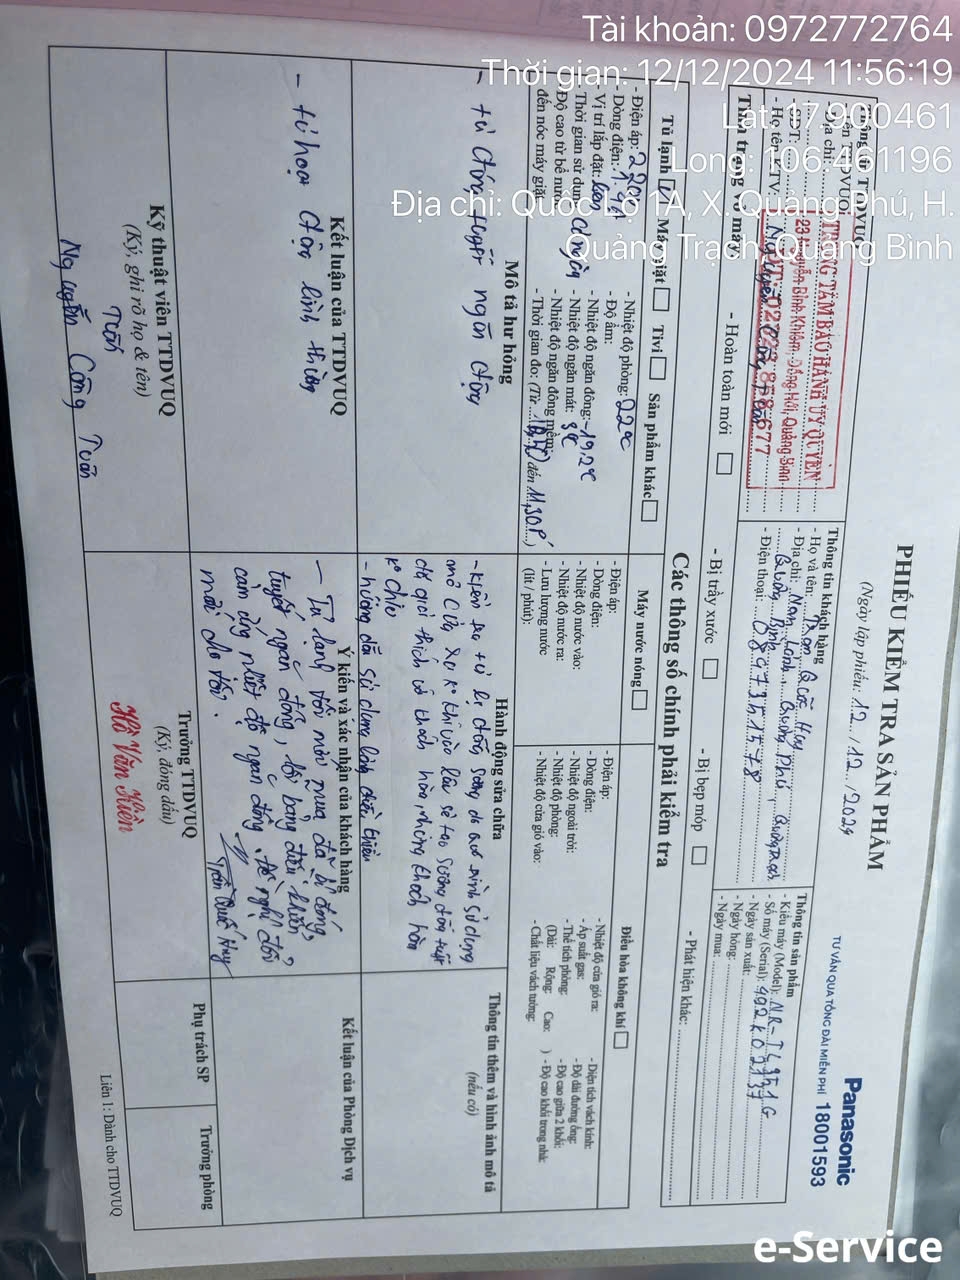 Tài khoản: 0972772764
Thời gian: 12/12/2024 11:56:19
Lat: 17.900461
Long: 106.461196
Địa chỉ: Quốc lộ 1A, X. Quảng Phú, H.
Quảng Trạch, Quảng Bình
Panasonic
TƯ VẤN QUA TỔNG ĐÀI MIỄN PHÍ 18001593
PHIẾU KIỂM TRA SẢN PHẨM
(Ngày lập phiếu: 12 / 12 / 2024
Thông tin TTDVUQ
Tên TTDVUQ:
TRUNG TÂM BẢO HÀNH ỦY QUYỀN
- Địa chỉ:
23 Nguyễn Bỉnh Khiêm, Đồng Hới, Quảng Bình
- SĐT:
- Họ tên KTV: Nguyễn Công
Thông tin khách hàng
- Họ và tên: Trần Quốc Huy
- Địa chỉ: Nam Lãnh, Quảng Phú, Quảng Trạch
Quảng Bình
- Điện thoại: 0897351578
Thông tin sản phẩm
- Kiểu máy (Model): NR-TL351G
- Số máy (Serial): 492K02137
- Ngày sản xuất:
- Ngày hỏng:
- Ngày mua:
Tình trạng vỏ máy
- Hoàn toàn mới
- Bị trầy xước
- Bị bẹp móp
- Phát hiện khác:
Các thông số chính phải kiểm tra
Tủ lạnh
Máy giặt
Tivi
Sản phẩm khác
Máy nước nóng
Điều hòa không khí
- Điện áp: 220V
- Dòng điện:
- Vị trí lắp đặt:
- Thời gian sử dụng:
- Độ cao từ bề nước
đến nóc máy giặt:
- Nhiệt độ phòng: 22°C
- Độ ẩm:
- Nhiệt độ ngăn đông: -19,2°C
- Nhiệt độ ngăn mát: 3°C
- Nhiệt độ ngăn đông mềm:
- Thời gian đo: (Từ đến 11,30P)
- Điện áp:
- Dòng điện:
- Nhiệt độ nước vào:
- Nhiệt độ nước ra:
- Lưu lượng nước
(lít/phút):
- Điện áp:
- Dòng điện:
- Nhiệt độ ngoài trời:
- Nhiệt độ phòng:
- Nhiệt độ cửa gió vào:
- Nhiệt độ cửa gió ra:
- Áp suất gas:
- Thể tích phòng:
(Dài: Rộng: Cao: )
- Chất liệu vách tường:
- Diện tích vách kính:
- Độ dài đường ống:
- Độ cao giữa 2 khối:
- Độ cao khối trong nhà:
Mô tả hư hỏng
- tủ đóng tuyết ngăn đông
Hành động sửa chữa
- kiểm tra tủ bị đóng sương do quá trình sử dụng
mở cửa
đã giải thích về khách hàng nhưng khách hàng
ko chịu
- hướng dẫn sử dụng
Thông tin thêm và hình ảnh mô tả
(nếu có)
Kết luận của TTDVUQ
- tủ hoạt động bình thường
Ý kiến và xác nhận của khách hàng
- Tủ lạnh tôi mới mua đã bị đóng
tuyết ngăn đông, lỗi bảng điều khiển,
cảm ứng nhiệt độ ngăn đông. Đề nghị đổi
mới cho tôi.
Trần Quốc Huy
Kết luận của Phòng Dịch vụ
Kỹ thuật viên TTDVUQ
(Ký, ghi rõ họ & tên)
Tuấn
Nguyễn Công Tuấn
Trưởng TTDVUQ
(Ký, đóng dấu)
Hồ Văn Hiền
Phụ trách SP
Trưởng phòng
Liên 1: Dành cho TTDVUQ
e-Service